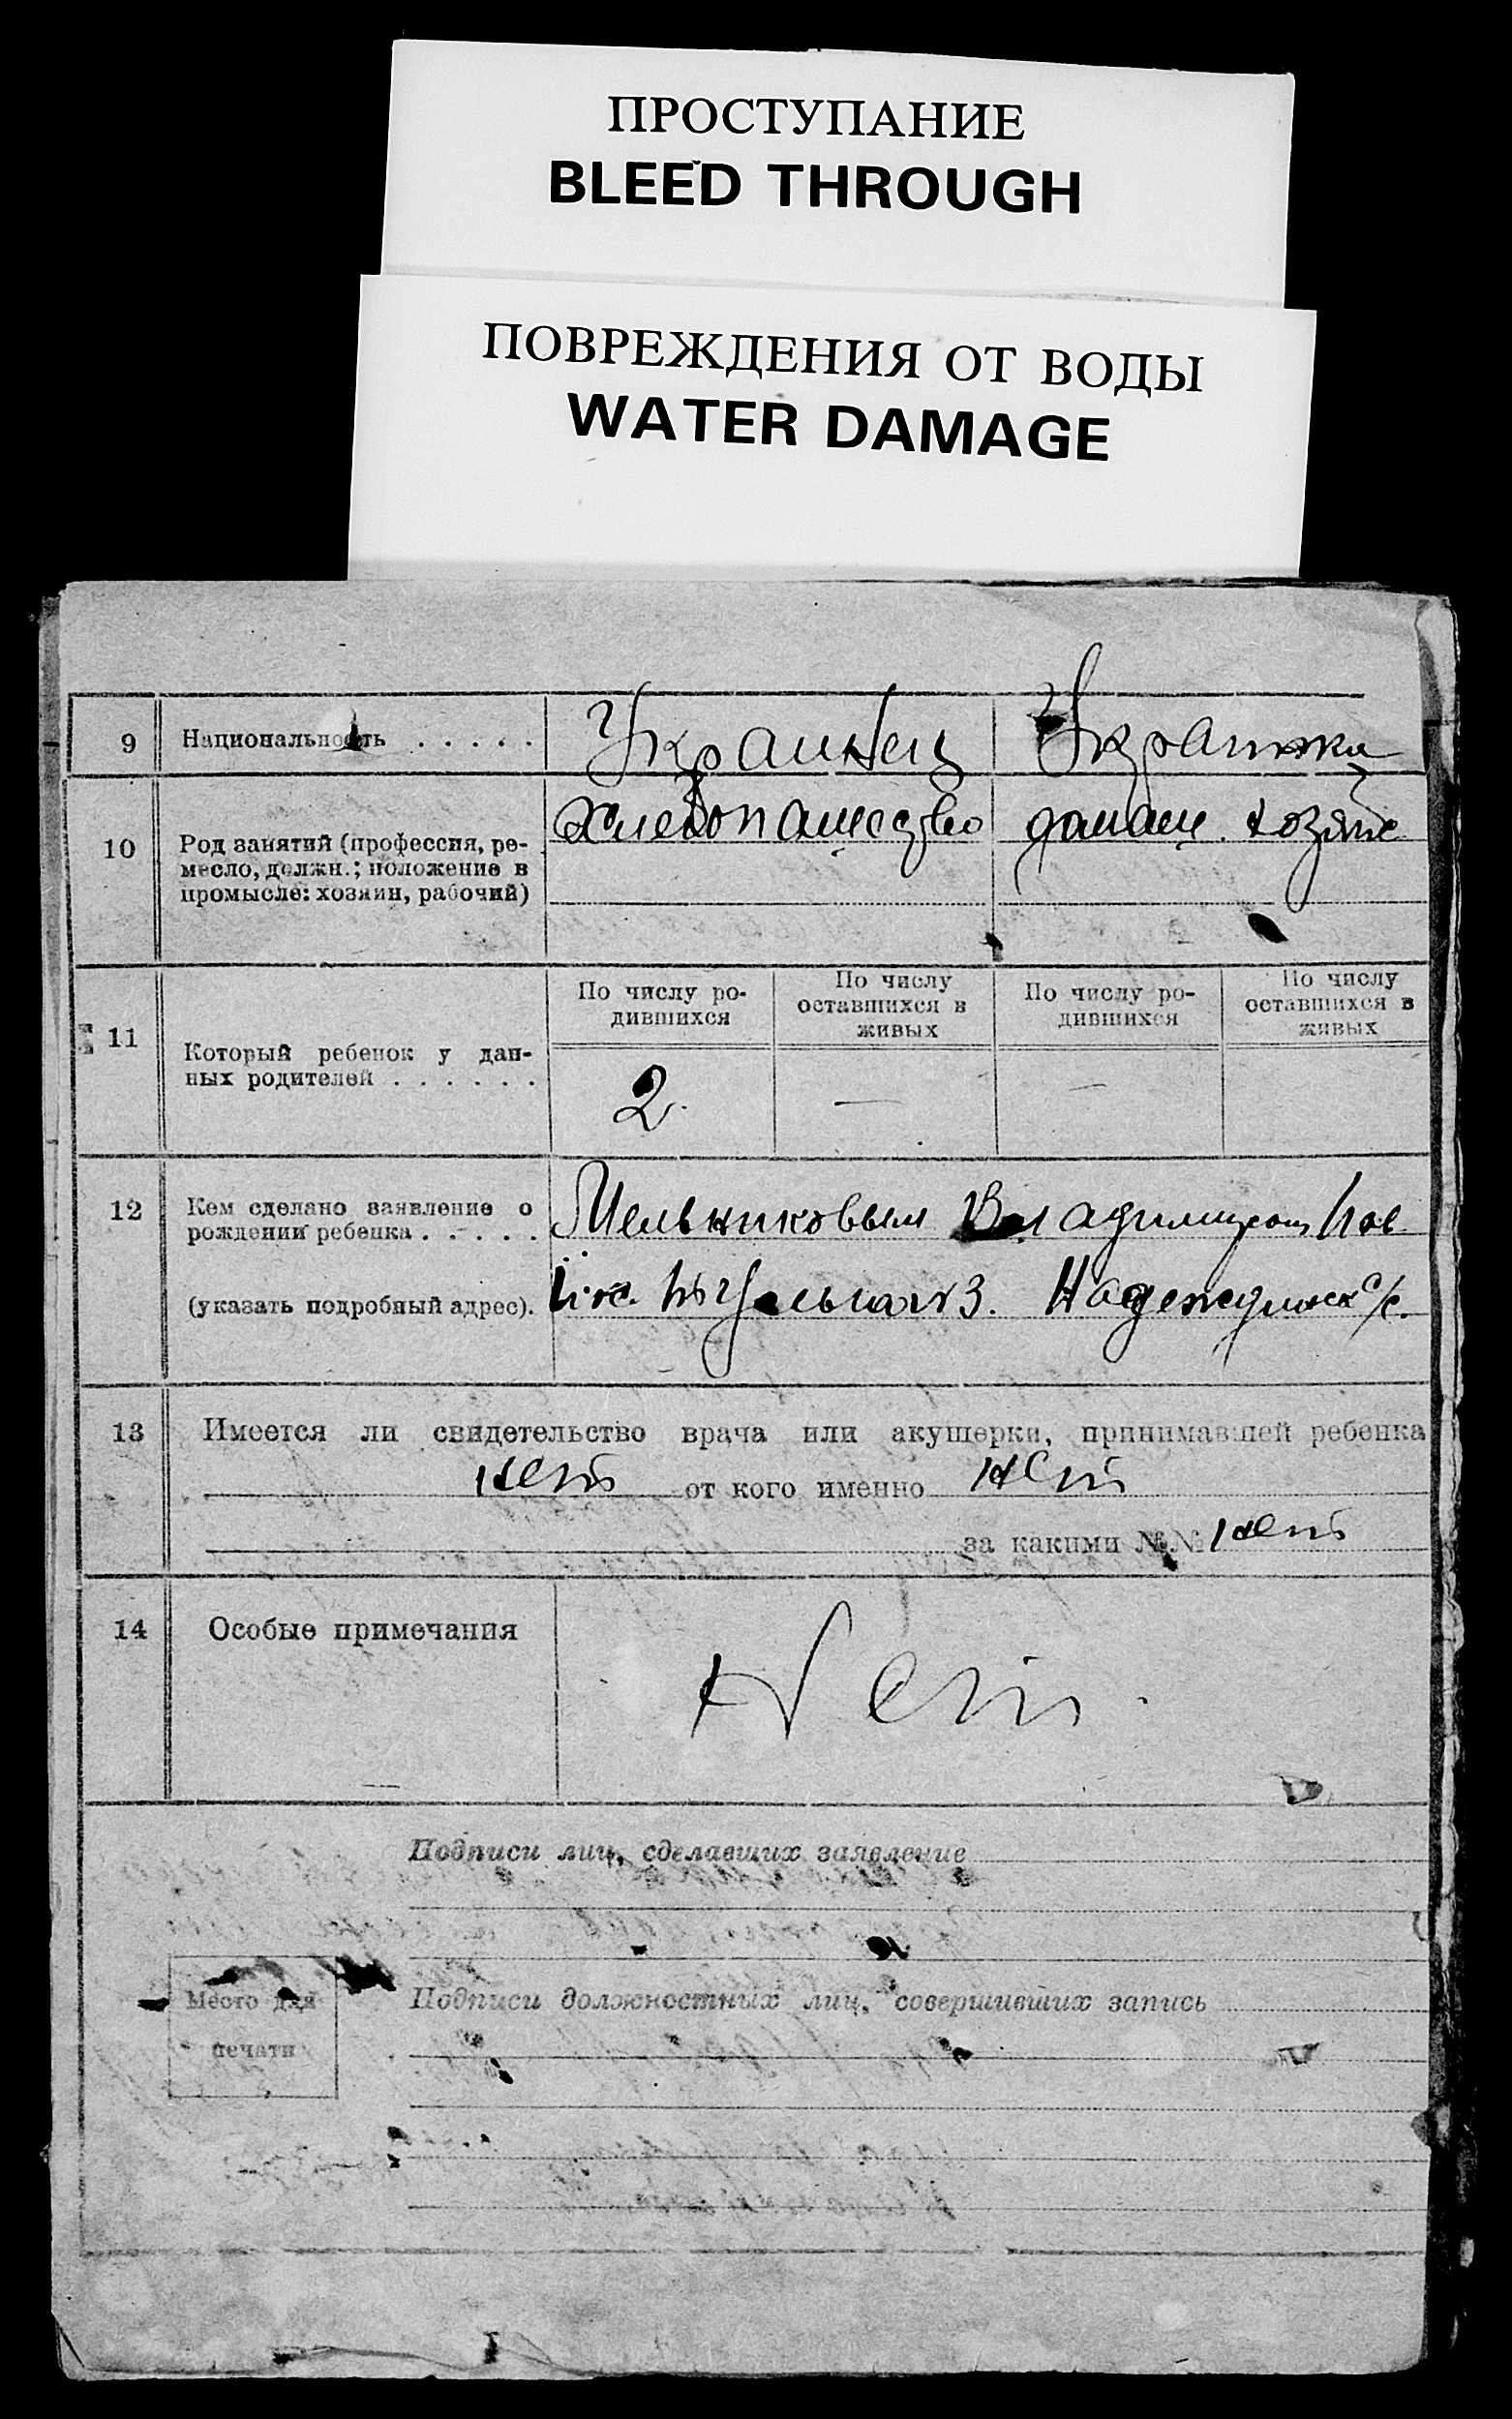 ПРОСТУПАНИЕ
BLEED THROUGH
ПОВРЕЖДЕНИЯ ОТ ВОДЫ
WATER DAMAGE
9 Национальность . . . . . Украинец Украинка
10 Род занятий (профессия, ре-
месло, должн.; положение в
промысле: хозяин, рабочий)
Хлебопашество домашн. хозяйс.
11 Который ребенок у дан-
ных родителей . . . . . .
По числу ро-
дившихся
По числу
оставшихся в
живых
По числу ро-
дившихся
По числу
оставшихся в
живых
2. — —
12 Кем сделано заявление о
рождении ребенка . . . . .
Мельниковым Владимиром
(указать подробный адрес).
Надеждинск с/с.
13 Имеется ли свидетельство врача или акушерки, принимавшей ребенка
нет от кого именно нет
за какими №№ нет
14 Особые примечания Нет.
Подписи лиц, сделавших заявление
Место для
печати
Подписи должностных лиц, совершивших запись